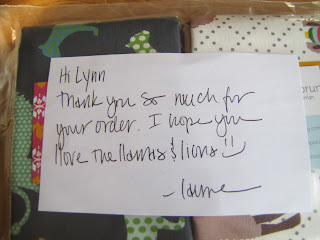 Hi Lynn
Thank you so much for
your order. I hope you
love the llamas & lions